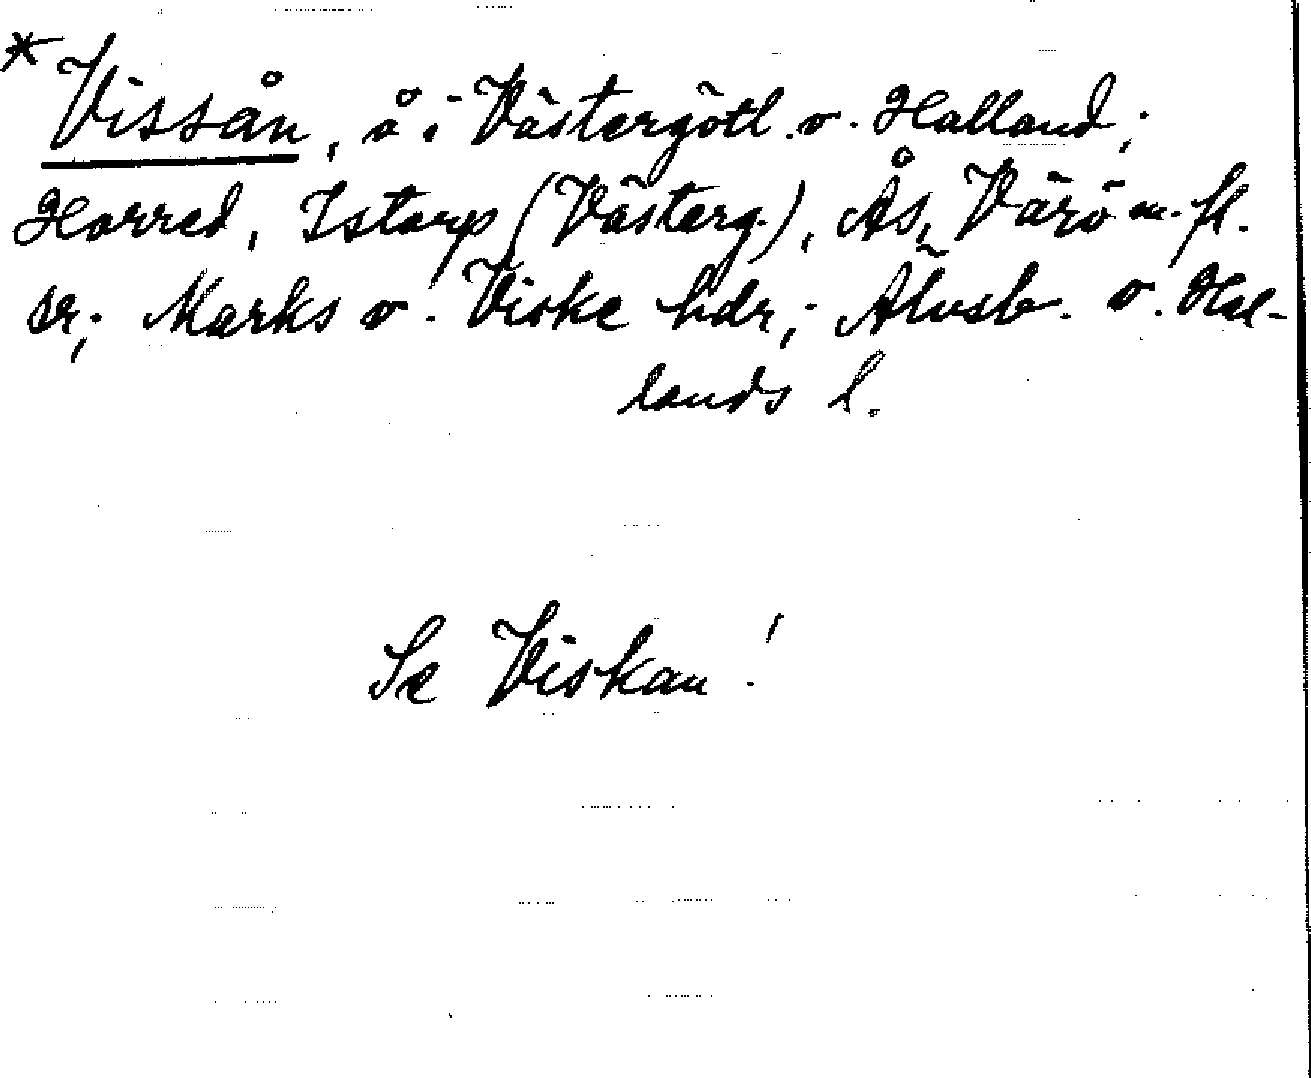 * Vissån, å i Västergötl. o. Halland;
Horred, Istorp (Västerg.), Ås, Värö m. fl.
sr; Marks o. Viske hdr; Älvsb. o. Hal-
lands l.
Se Viskan!